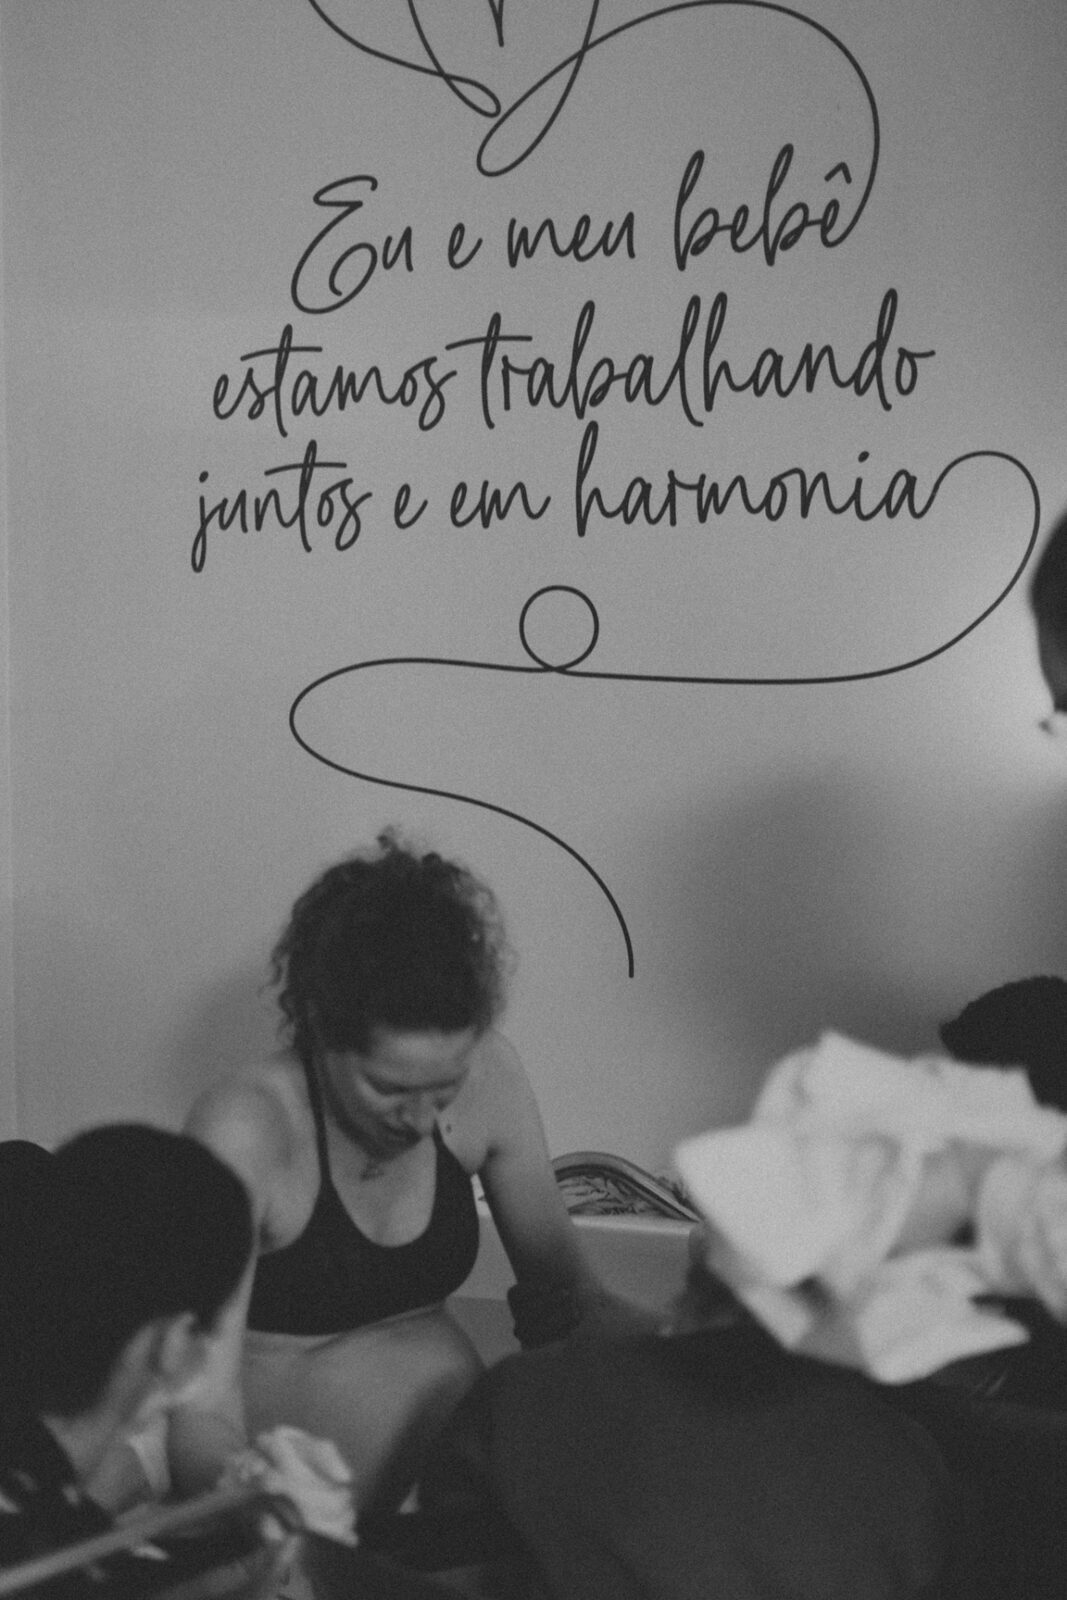 Eu e meu bebê
estamos trabalhando
juntos e em harmonia